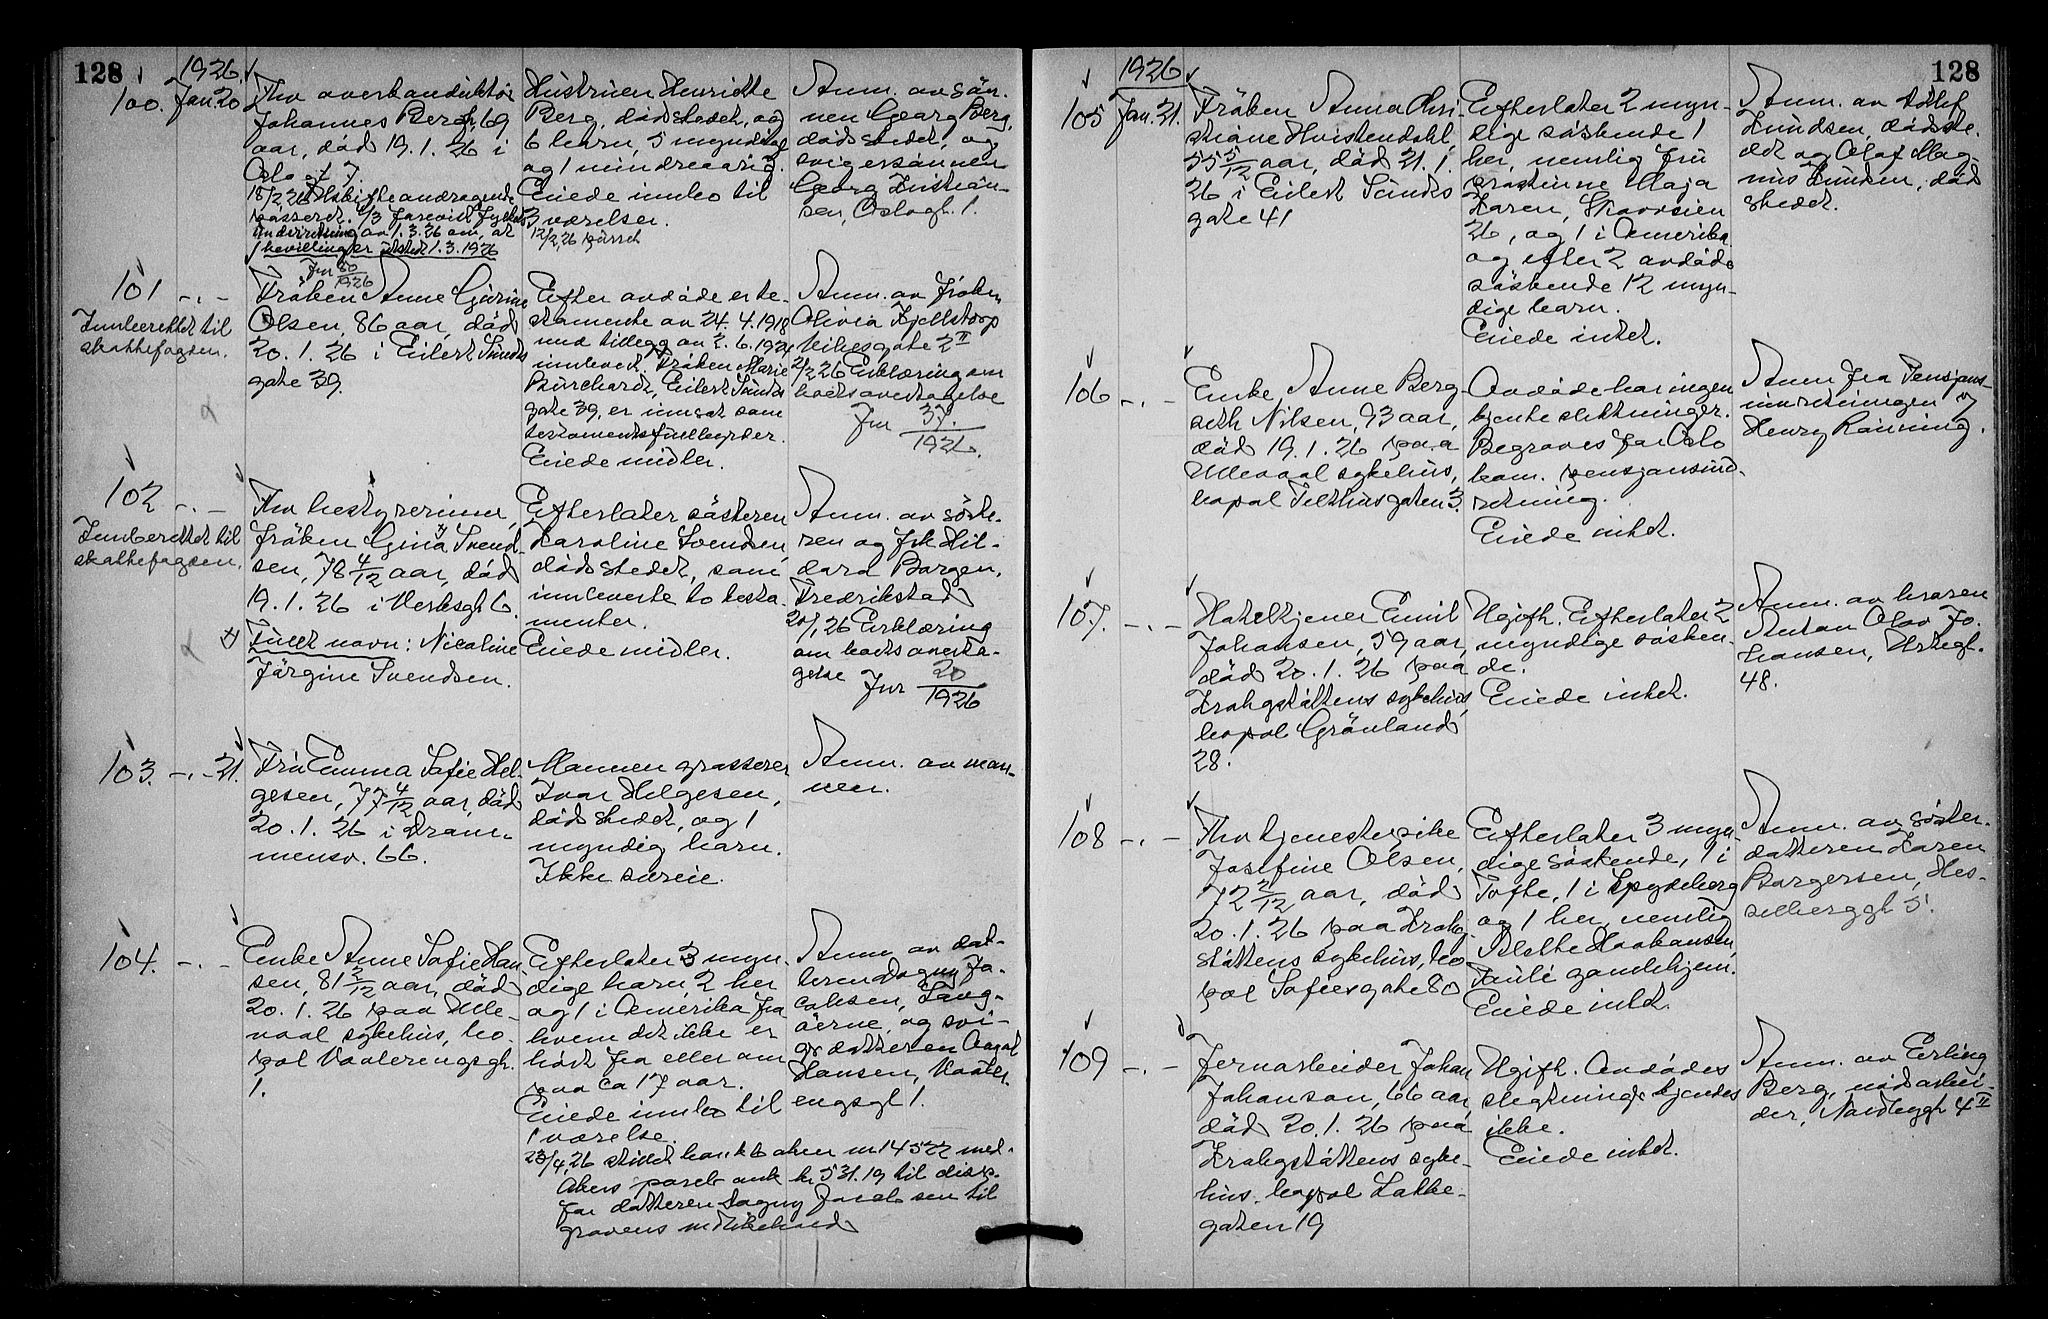 128
1926.
100. Jan 20
Fhv overkonduktör
Johannes Berg, 69
aar, död 19. 1. 26 i
Oslo gt 7.
passeret.
underretning av 1.3.26 om, at
bevilling er utstedt 1.3.1926
Jnr 80/1926
Hustruen Henriette
Berg, dödsstedet, og
6 barn, 5 myndige
og 1 mindreaarig.
Eiede innbo til
3 værelser.
12/2 26 purret
Anm. av sön-
nen Georg Berg,
dödsstedet, og
svigersönnen
Georg Kristian-
sen, Oslogt. 1.
101 -.-
Innberettet til
skattefogden.
Fröken Anne Gurine
Olsen, 86 aar, död
20. 1. 26 i Eilert Sundts
gate 39.
Efter avdöde er te-
stamente av 24. 4. 1918
med tillegg av 2. 6. 1924
innlevert. Fröken Marie
Burchardt, Eilert Sundts
gate 39, er innsat som
testamentsfullbyrder.
Eiede midler.
Anm. av fröken
Olivia Kjellstorp
Vibesgate 2 II
2/2 26 Erklæring om
boets overtagelse
Jnr 37/1926.
102 -.-
Innberettet til
skattefogden.
Fhv bestyrerinne,
fröken Gina x) Svend-
sen, 78 4/12 aar, död
19. 1. 26 i Verksgt 6.
x) Fullt navn: Nicoline
Jörgine Svendsen.
Efterlater sösteren
Karoline Svendsen,
dödsstedet, som
innleverte to testa-
menter.
Eiede midler.
Anm. av söste-
ren og frk Hil-
dard Borgen,
Fredrikstad
20/1 26 Erklæring
om boets overta-
gelse Jnr 20/1926
103. -.- 21.
Fru Emma Sofie Hel-
gesen, 77 4/12 aar, död
20. 1. 26 i Dram-
mensv. 66.
Mannen grosserer
Ivar Helgesen,
dödsstedet, og 1
myndig barn.
Ikke særeie.
Anm. av man-
nen.
104. -.-
Enke Anne Sofie Han-
sen, 81 2/12 aar, död
20. 1. 26 paa Ulle-
vaal sykehus, bo-
pæl Vaalerengsgt.
1.
Efterlater 3 myn-
dige barn 2 her
og 1 i Amerika fra
hvem det ikke er
hört fra eller om
paa ca 17 aar.
Eiede innbo til
1 værelse.
23/4 26 stillet bank
Akers spareb ank kr 531.19 til disp.
for datteren Dagny Jacobsen til
gravens vedlikehold
Anm. av dat-
teren Dagny Ja-
cobsen, Lang-
öerne, og svi-
gerdatteren Aagot
Hansen, Vaaler-
engsgt 1.
1926
128
105 Jan. 21.
Fröken Anna Chri-
stiane Hvistendahl,
55 5/12 aar, död 21. 1.
26 i Eilert Sundts
gate 41
Efterlater 2 myn-
dige söskende 1
her, nemlig fru
prostinne Maja
Karen,
26, og 1 i Amerika
og efter 2 avdöde
söskende 12 myn-
dige barn.
Eiede intet.
Anm. av Detlef
Knudsen, dödste-
det og Olaf Mag-
nus Knudsen, död
stedet.
106 -.-
Enke Anne Berg-
seth Nilsen, 93 aar,
död 19. 1. 26 paa
Ullevaal sykehus,
bopæl Pilthusgaten 3.
Avdöde har ingen
kjente slektninger.
Begraves for Oslo
kom. pensjonsind-
retning.
Eiede intet.
Anm fra Pensjons-
innretningen v
Henry Rönning.
107. -.-
Hotelltjener Emil
Johansen, 59 aar,
död 20. 1. 26 paa
Krohgstöttens sykehus,
bopæl Grönland
28.
Ugift. Efterlater 2
myndige sösken-
de.
Eiede intet.
Anm. av broren
Anton Olav Jo-
hansen, Urtegt.
48.
108 -.-
Fhv tjenestepike
Josefine Olsen,
72 2/12 aar, död
20. 1. 26 paa Krohg-
stöttens sykehus, bo-
pæl Sofiesgate 80
Efterlater 3 myn-
dige söskende, 1 i
Tofte, 1 i Spydeberg
og 1 her, nemlig
Haakansen,
Pauli gamlehjem.
Eiede intet.
Anm. av söster-
datteren Karen
Borgersen, Hes-
selberggt 5.
109 -.-
Jernarbeider Johan
Johanson, 66 aar,
död 20. 1. 26 paa
Krohgstöttens syke-
hus, bopæl Lakke-
gaten 19
Ugift. Avdödes
slegtninge kjendes
ikke.
Eiede intet.
Anm. av Erling
Berg, nödsarbei-
der, Nordbygt 4 II